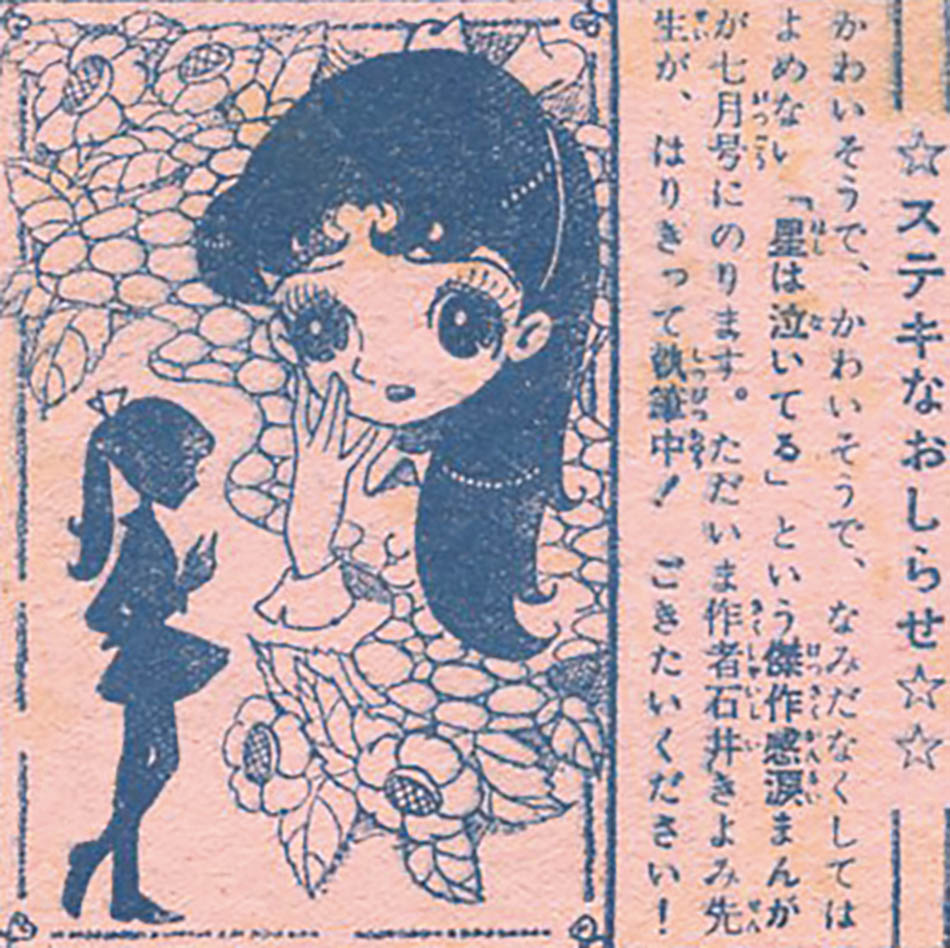 ☆ステキなおしらせ☆☆
かわいそうで、かわいそうで、なみだなくしては
よめない「星は泣いてる」という傑作感涙まんが
が七月号にのります。ただいま作者石井きよみ先
生が、はりきって執筆中！ごきたいください！